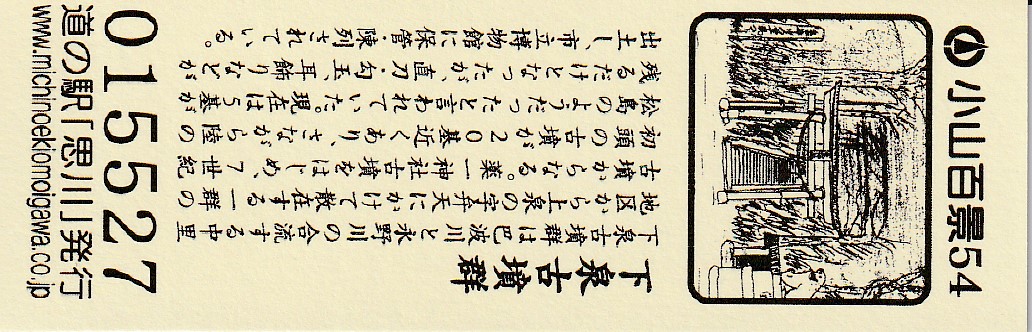 小山百景54
下泉古墳群
下泉古墳群は巴波川と永野川の合流する中里
地区から上泉の字弁天にかけて散在する一群の
古墳からなる。薬一神社古墳をはじめ、7世紀
初頭の古墳が20基近くあり、さながら陸の
松島のようだったと言われていた。現在は5基が
残るだけとなったが、直刀・勾玉、耳飾りなどが
出土し、市立博物館に保管・陳列されている。
015527
道の駅「思川」発行
www.michinoekiomoigawa.co.jp